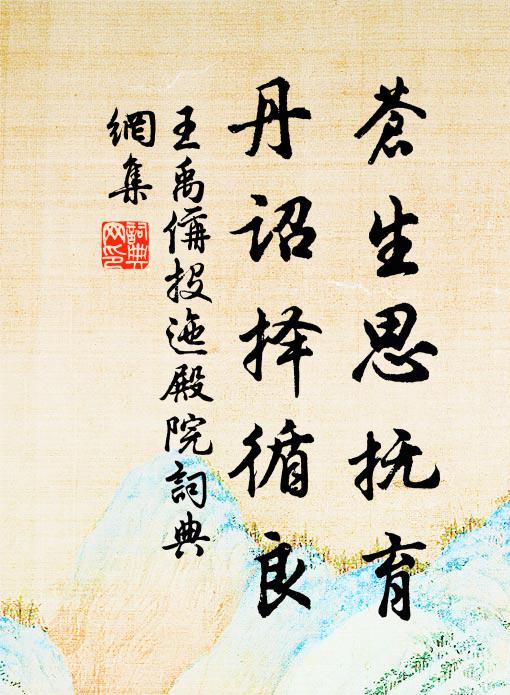 蒼生思抚育
丹诏择循良
王禹偁投迤殿院詞典
網集
詞典
网印